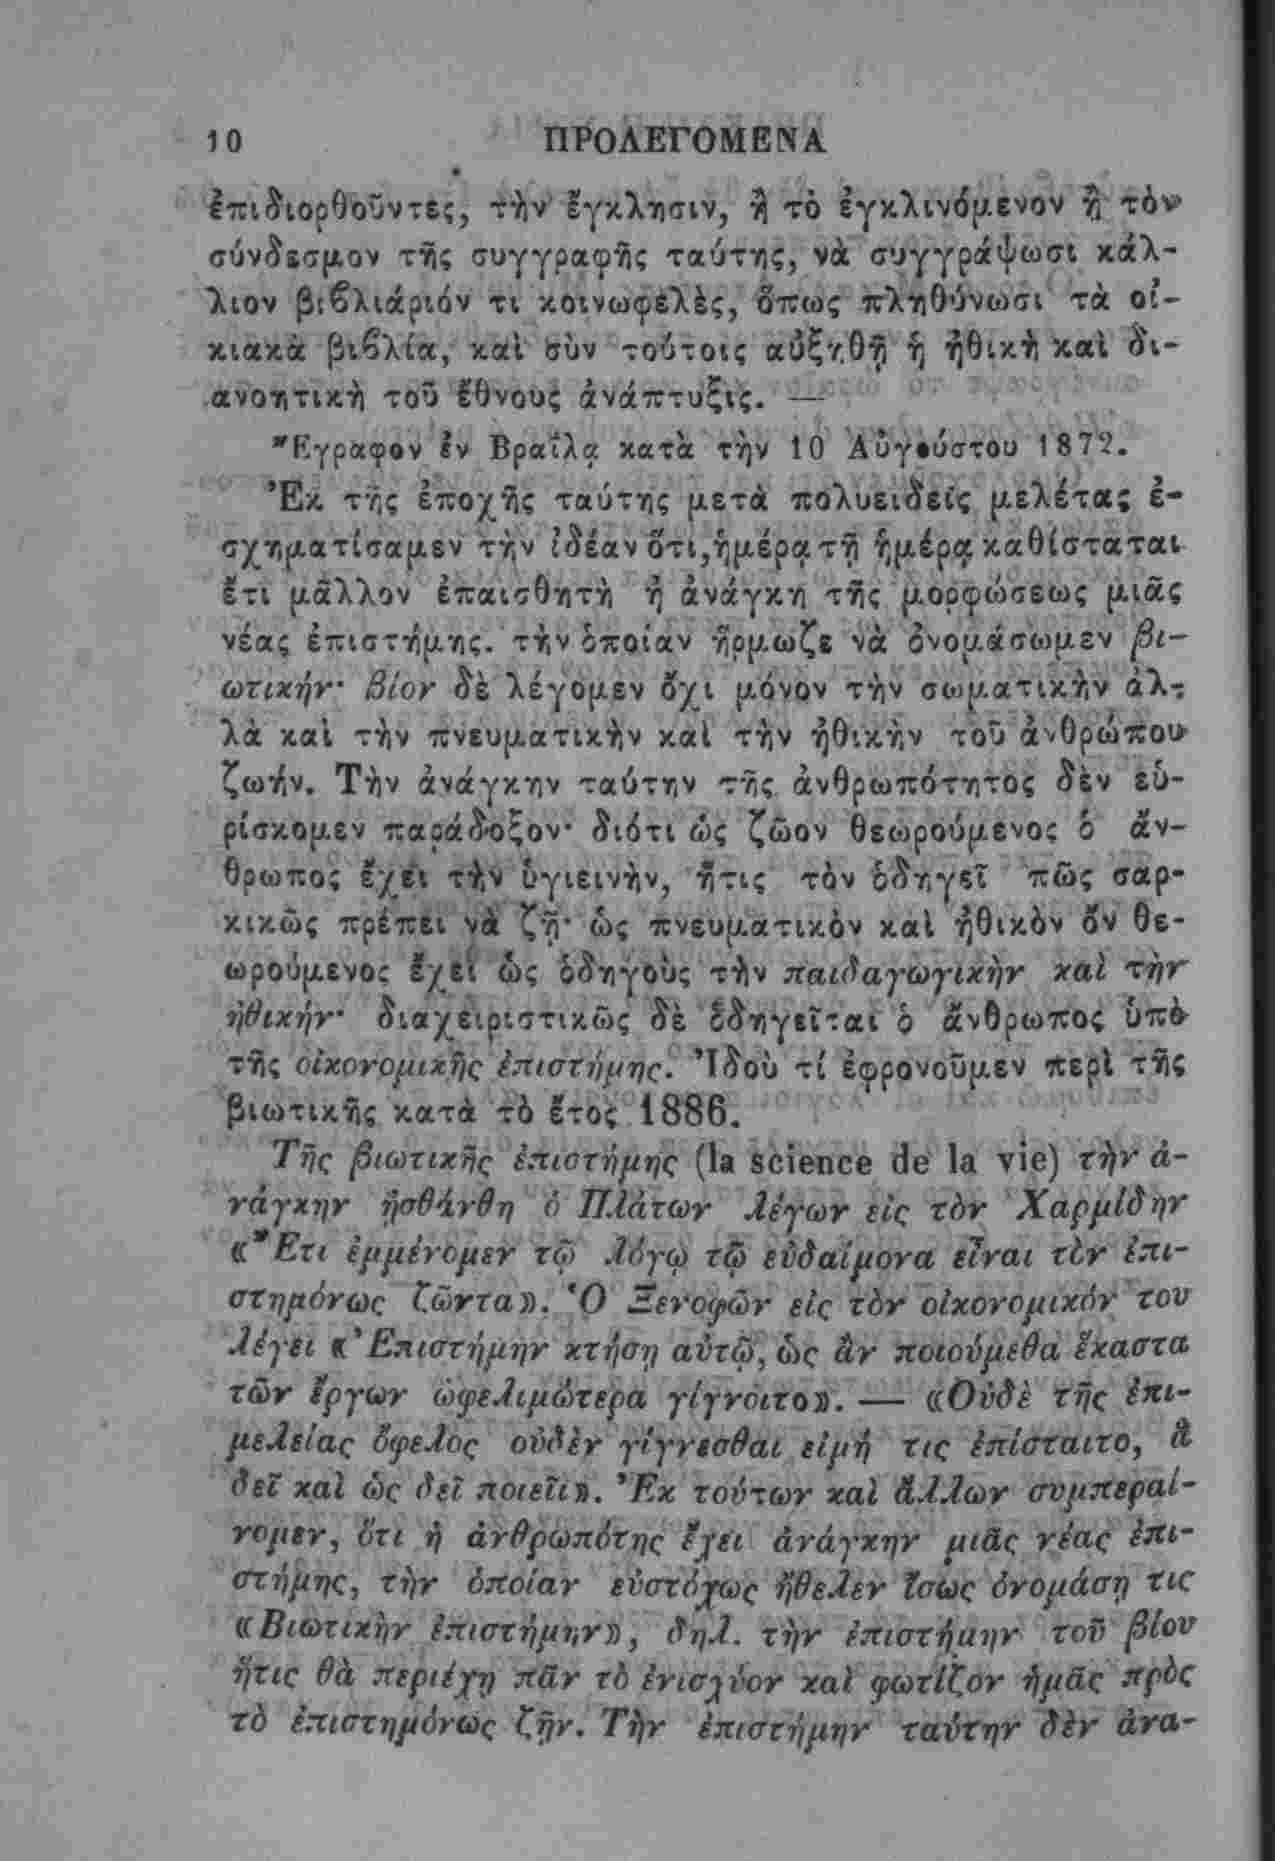 10 ΠΡΟΛΕΓΟΜΕΝΑ
ἐπιδιορθοῦντες, τὴν ἔγκλησιν, ἢ τὸ ἐγκλινόμενον ἢ τὸν
σύνδεσμον τῆς συγγραφῆς ταύτης, νὰ συγγράψωσι κάλ-
λιον βιβλιάριόν τι κοινωφελὲς, ὅπως πληθύνωσι τὰ οἰ-
κιακὰ βιβλία, καὶ σὺν τούτοις αὐξηθῇ ἡ ἠθικὴ καὶ δι-
ανοητικὴ τοῦ ἔθνους ἀνάπτυξις. —
Ἔγραφον ἐν Βραΐλᾳ κατὰ τὴν 10 Αὐγούστου 1872.
Ἐκ τῆς ἐποχῆς ταύτης μετὰ πολυειδεῖς μελέτας ἐ-
σχηματίσαμεν τὴν ἰδέαν ὅτι, ἡμέρᾳ τῇ ἡμέρᾳ καθίσταται
ἔτι μᾶλλον ἐπαισθητὴ ἡ ἀνάγκη τῆς μορφώσεως μιᾶς
νέας ἐπιστήμης. τὴν ὁποίαν ἥρμωζε νὰ ὀνομάσωμεν βι-
ωτικήν· βίον δὲ λέγομεν ὄχι μόνον τὴν σωματικὴν ἀλ-
λὰ καὶ τὴν πνευματικὴν καὶ τὴν ἠθικὴν τοῦ ἀνθρώπου
ζωήν. Τὴν ἀνάγκην ταύτην τῆς ἀνθρωπότητος δὲν εὑ-
ρίσκομεν παράδοξον· διότι ὡς ζῶον θεωρούμενος ὁ ἄν-
θρωπος ἔχει τὴν ὑγιεινὴν, ἥτις τὸν ὁδηγεῖ πῶς σαρ-
κικῶς πρέπει νὰ ζῇ· ὡς πνευματικὸν καὶ ἠθικὸν ὂν θε-
ωρούμενος ἔχει ὡς ὁδηγοὺς τὴν παιδαγωγικὴν καὶ τὴν
ἠθικήν· διαχειριστικῶς δὲ ὁδηγεῖται ὁ ἄνθρωπος ὑπὸ
τῆς οἰκονομικῆς ἐπιστήμης. Ἰδοὺ τί ἐφρονοῦμεν περὶ τῆς
βιωτικῆς κατὰ τὸ ἔτος 1886.
Τῆς βιωτικῆς ἐπιστήμης (la science de la vie) τὴν ἀ-
νάγκην ᾐσθάνθη ὁ Πλάτων λέγων εἰς τὸν Χαρμίδην
«Ἔτι ἐμμένομεν τῷ λόγῳ τῷ εὐδαίμονα εἶναι τὸν ἐπι-
στημόνως ζῶντα». Ὁ Ξενοφῶν εἰς τὸν οἰκονομικόν του
λέγει «Ἐπιστήμην κτήσῃ αὐτῷ, ὡς ἂν ποιούμεθα ἕκαστα
τῶν ἔργων ὠφελιμώτερα γίγνοιτο». — «Οὐδὲ τῆς ἐπι-
μελείας ὄφελος οὐδὲν γίγνεσθαι εἰμή τις ἐπίσταιτο, ἃ
δεῖ καὶ ὡς δεῖ ποιεῖν». Ἐκ τούτων καὶ ἄλλων συμπεραί-
νομεν, ὅτι ἡ ἀνθρωπότης ἔχει ἀνάγκην μιᾶς νέας ἐπι-
στήμης, τὴν ὁποίαν εὐστόχως ἤθελεν ἴσως ὀνομάσῃ τις
«Βιωτικὴν ἐπιστήμην», δηλ. τὴν ἐπιστήμην τοῦ βίου
ἥτις θὰ περιέχῃ πᾶν τὸ ἐνισχύον καὶ φωτίζον ἡμᾶς πρὸς
τὸ ἐπιστημόνως ζῇν. Τὴν ἐπιστήμην ταύτην δὲν ἀνα-